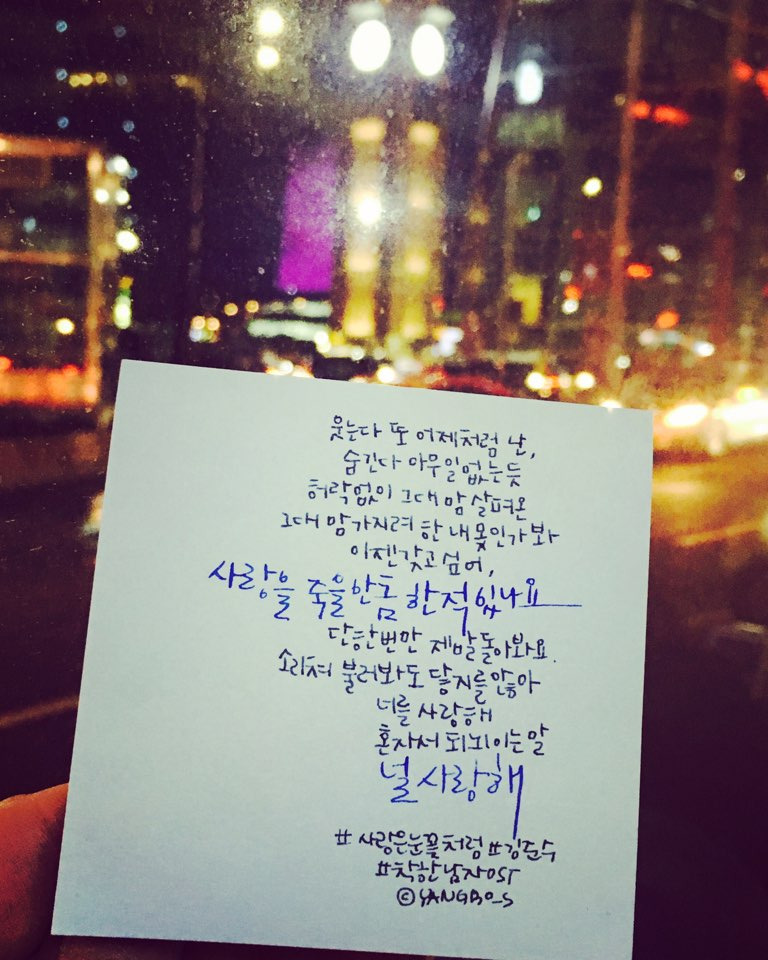 웃는다 또 어제처럼 난,
숨긴다 아무일없는듯
허락없이 그대 맘 살펴온
그대 맘 가지려 한 내 몫인가봐
이젠갖고 싶어,
사랑을 죽을만큼 한적있나요
단한번만 제발돌아봐요.
소리쳐 불러봐도 닿지를않아
너를 사랑해
혼자서 되뇌이는 말
널 사랑해
# 사랑은눈꽃처럼 #김준수
#착한남자OST
©YANGBO_S